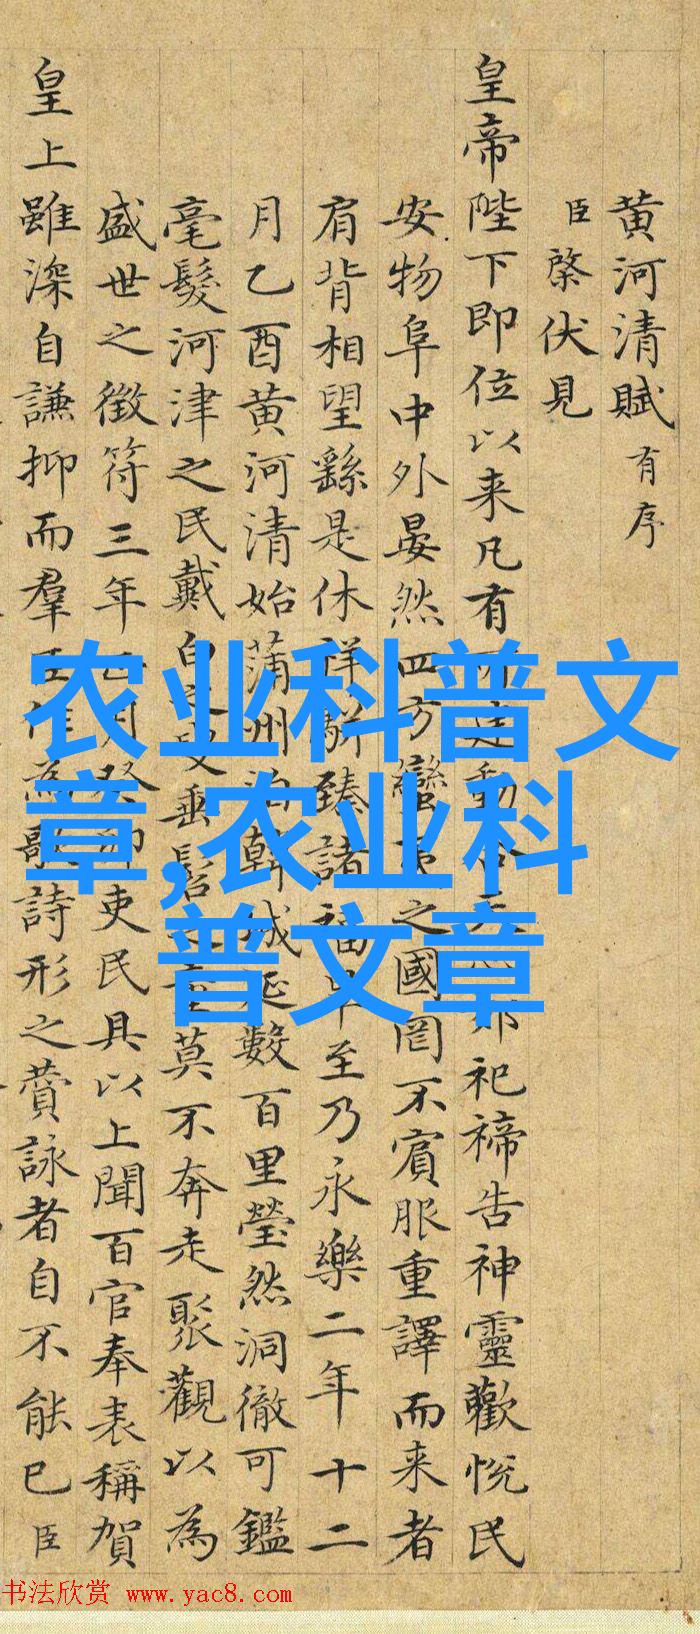 黄河清賦 有序
臣棨伏見
皇帝陛下即位以来凡有 郊祀禘告神靈歡悦民
安物阜中外晏然四方蠻 之國罔不賓服重譯而来者
肩背相望繇是休祥 臻諸福 至乃永樂二年十二
月乙酉黄河清始蒲州 韓城延數百里瑩然洞徹可鑑
毫髮河津之民戴白之叟垂髫 莫不奔走聚觀以為
盛世之徵符三年 月 吏民具以上聞百官奉表稱賀
皇上雖深自謙抑而羣 作為歌詩形之贊詠者自不能已臣
农业科普文
章,农业科
普文章
书法欣赏 www.yac8.com